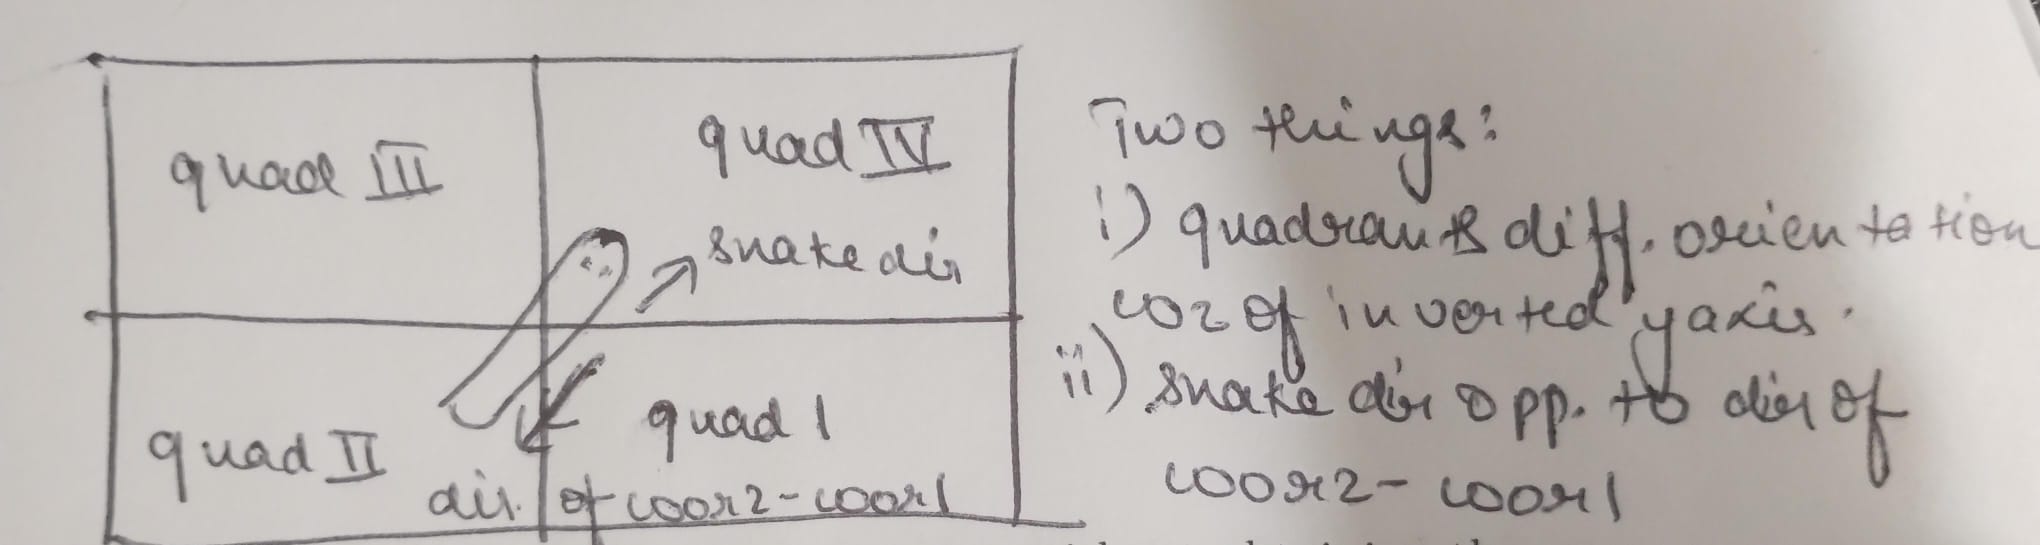 quad III
quad IV
snake dir
quad II
quad 1
dir. of coor2-coor1
Two things:
i) quadrants diff. orientation
coz of inverted y axis.
ii) snake dir opp. to dir of
coor2- coor1